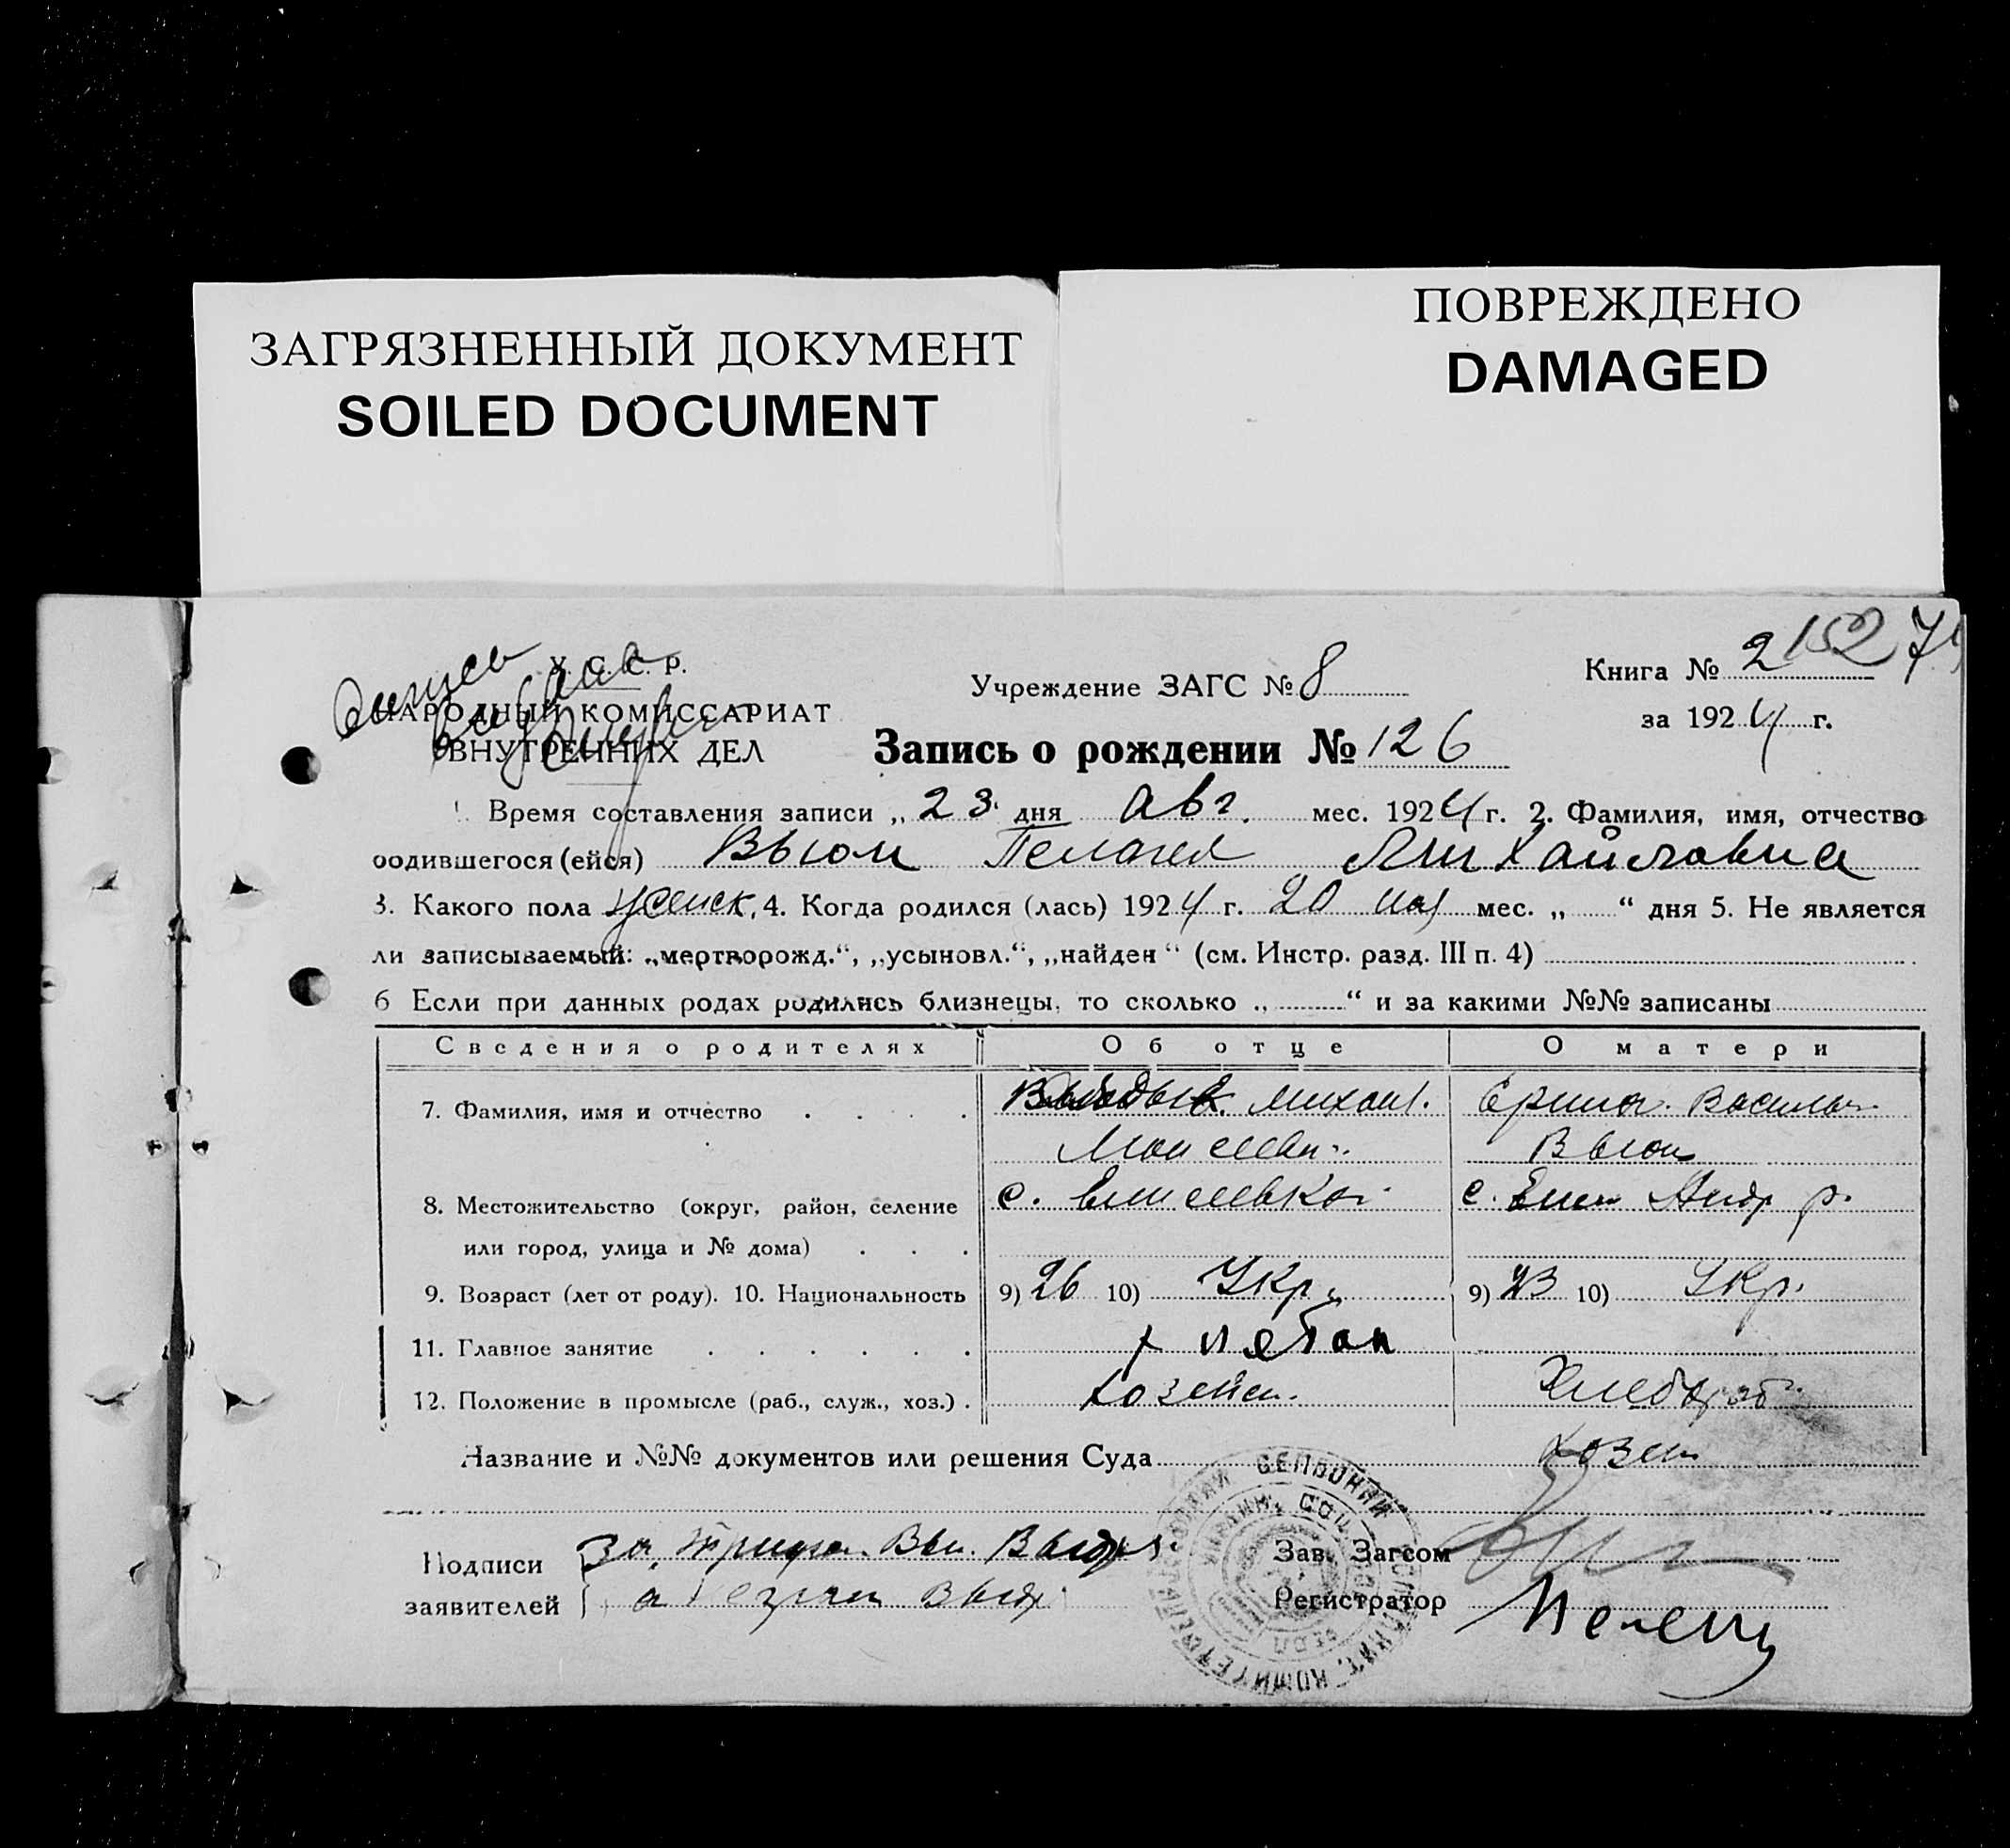 ЗАГРЯЗНЕННЫЙ ДОКУМЕНТ
SOILED DOCUMENT
ПОВРЕЖДЕНО
DAMAGED
У. С. С. Р.
НАРОДНЫЙ КОМИССАРИАТ
ВНУТРЕННИХ ДЕЛ
Учреждение ЗАГС № 8
Книга № 2 152
за 1924 г.
Запись о рождении № 126
1. Время составления записи „ 23 дня авг. мес. 1924 г. 2. Фамилия, имя, отчество
родившегося (ейся) Вьюн Пелагея Михайловна
3. Какого пола женск. 4. Когда родился (лась) 1924 г. 20 мая мес. „ “ дня 5. Не является
ли записываемый: „мертворожд.“, „усыновл.“, „найден“ (см. Инстр. разд. III п. 4)
6 Если при данных родах родились близнецы, то сколько „ “ и за какими №№ записаны
Сведения о родителях Об отце О матери
7. Фамилия, имя и отчество Михаил. Василь
Моисеев Вьюн
8. Местожительство (округ, район, селение с. Елисеевка с. Елис Андр р.
или город, улица и № дома)
9. Возраст (лет от роду). 10. Национальность 9) 26 10) Укр. 9) 23 10) Укр.
11. Главное занятие хлебоп
12. Положение в промысле (раб., служ., хоз.) хозяин. Хлебороб
Название и №№ документов или решения Суда хозяи
Подписи За
заявителей а
Зав. Загсом
Регистратор